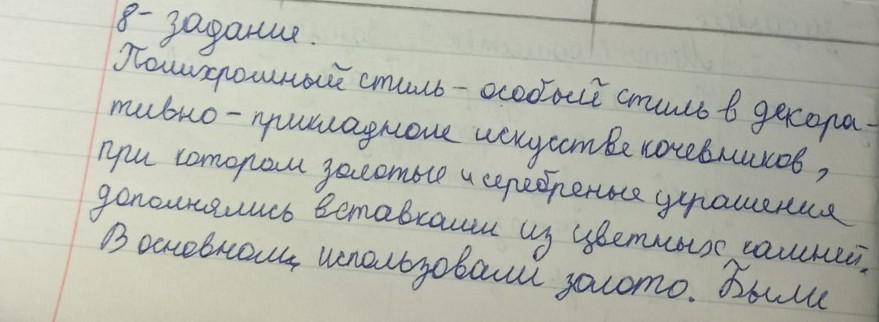 8- задание.
Полихромный стиль - особый стиль в декора-
тивно - прикладном искусстве кочевников,
при котором золотые и серебреные украшения
дополнялись вставками из цветных камней.
В основном, использовали золото. Были